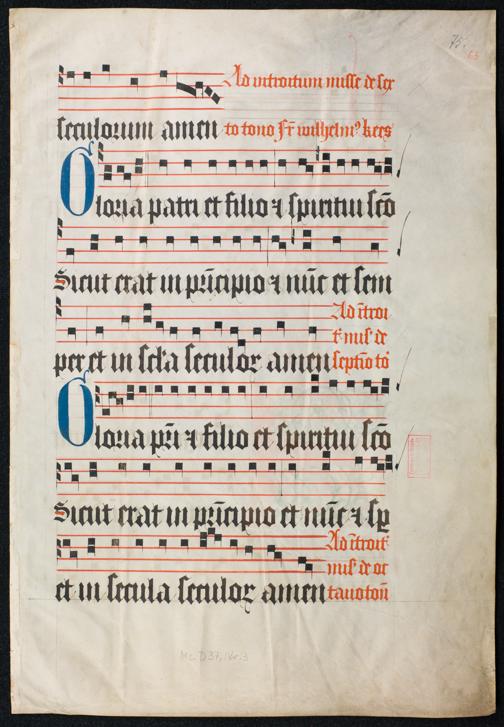 Ad introitum misse de sex
seculorum amen to tono Fr wilhelmꝰ kees
Gloria patri et filio ⁊ spiritui sc̄o
Sicut erat in prīcipio ⁊ nūc et sem
Ad i̅troi
t᷒ mis̕ de
per et in sc̄la seculoꝝ amen septīo tō
Gloria pr̄i ⁊ filio et spiritui sc̄o
Sicut erat in pri̅cipio et nūc ⁊ sp̱
Ad i̅troit᷒
mis̕ de oc
et in secula seculoꝝ amen tauo ton̄